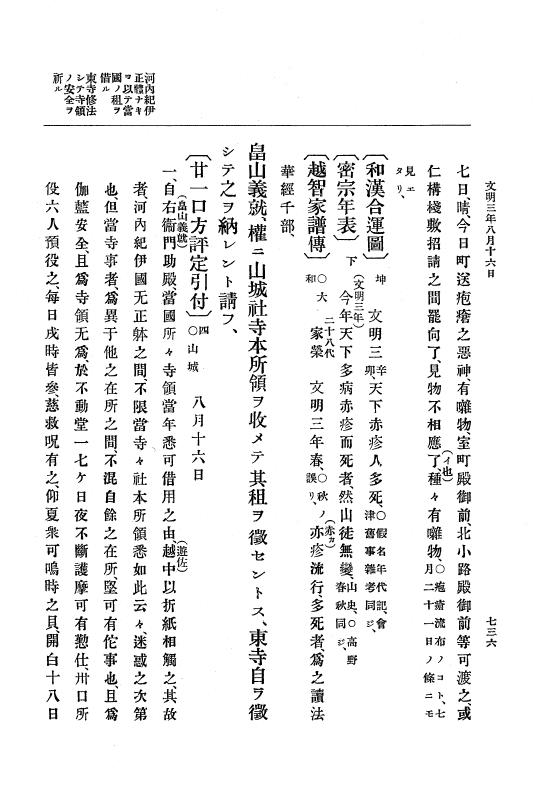 文明三年八月十六日
七三六
河内紀伊
正體ナキ
ヲ以テ當
國ノ租ヲ
借ル
東寺修法
シテ寺領
ノ安全ヲ
祈ル
七日晴、今日町送疱瘡之惡神、有囃物、室町殿御前、北小路殿御前等可渡之、或
仁構棧敷招請之間罷向了、見物不相應了、(イ也)種々有囃物、○疱瘡流布ノコト、七月二十一日ノ條ニモ
見エタリ、
〔和漢合運圖〕坤 文明三辛卯、天下赤疹人多死、○假名年代記、會津舊事雜考同ジ、
〔密宗年表〕下 今年(文明三年)天下多病赤疹而死者、然山徒無變、山史、○高野春秋同ジ、
〔越智家譜傳〕○大和 二十八代家榮 文明三年春、○秋ノ誤リ、亦(赤カ)疹流行、多死者、爲之讀法
華經千部、
畠山義就、權ニ山城社寺本所領ヲ收メテ其租ヲ徵セントス、東寺自ヲ徵
シテ之ヲ納レント請フ、
〔廿一口方評定引付〕四 ○山城 八月十六日
一、自右衞門助殿(畠山義就)當國所々寺領當年悉可借用之由、越中(遊佐)以折紙相觸之、其故
者河内紀伊國无正躰之間、不限當寺々社本所領悉如此云々、迷惑之次第
也、但當寺事者、爲異于他之在所之間、不混自餘之在所、堅可有侘事也、且爲
伽藍安全、且爲寺領无爲、於不動堂一七ケ日夜不斷護摩可有懃仕、卅口所
役六人預役之、每日戌時皆參、慈救呪有之、仰夏衆可鳴時之貝、開白十八日